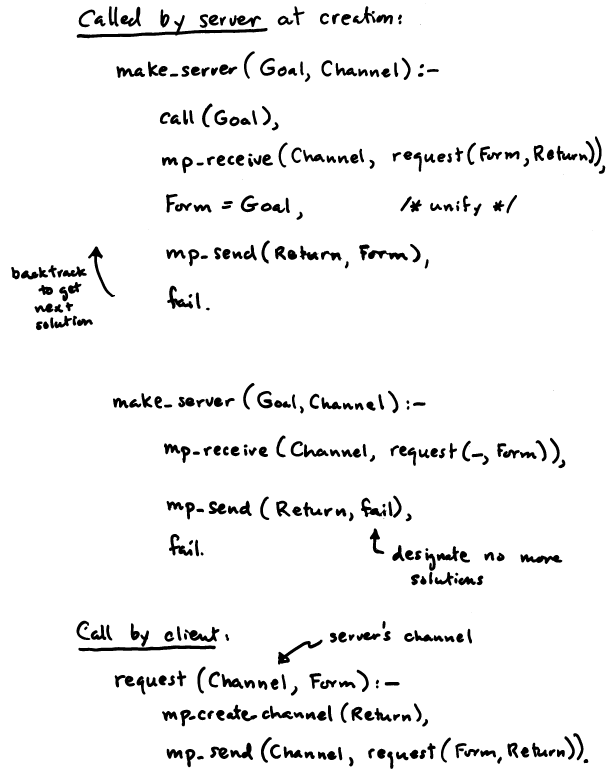 Called by server at creation:
make_server (Goal, Channel) :-
call (Goal),
mp_receive (Channel, request (Form, Return)),
Form = Goal, /* unify */
mp_send (Return, Form),
backtrack
to get
next
solution
fail.
make_server (Goal, Channel) :-
mp_receive (Channel, request (_, Form)),
mp_send (Return, fail),
fail.
designate no more
solutions
Call by client:
server's channel
request (Channel, Form) :-
mp_create_channel (Return),
mp_send (Channel, request (Form, Return)).